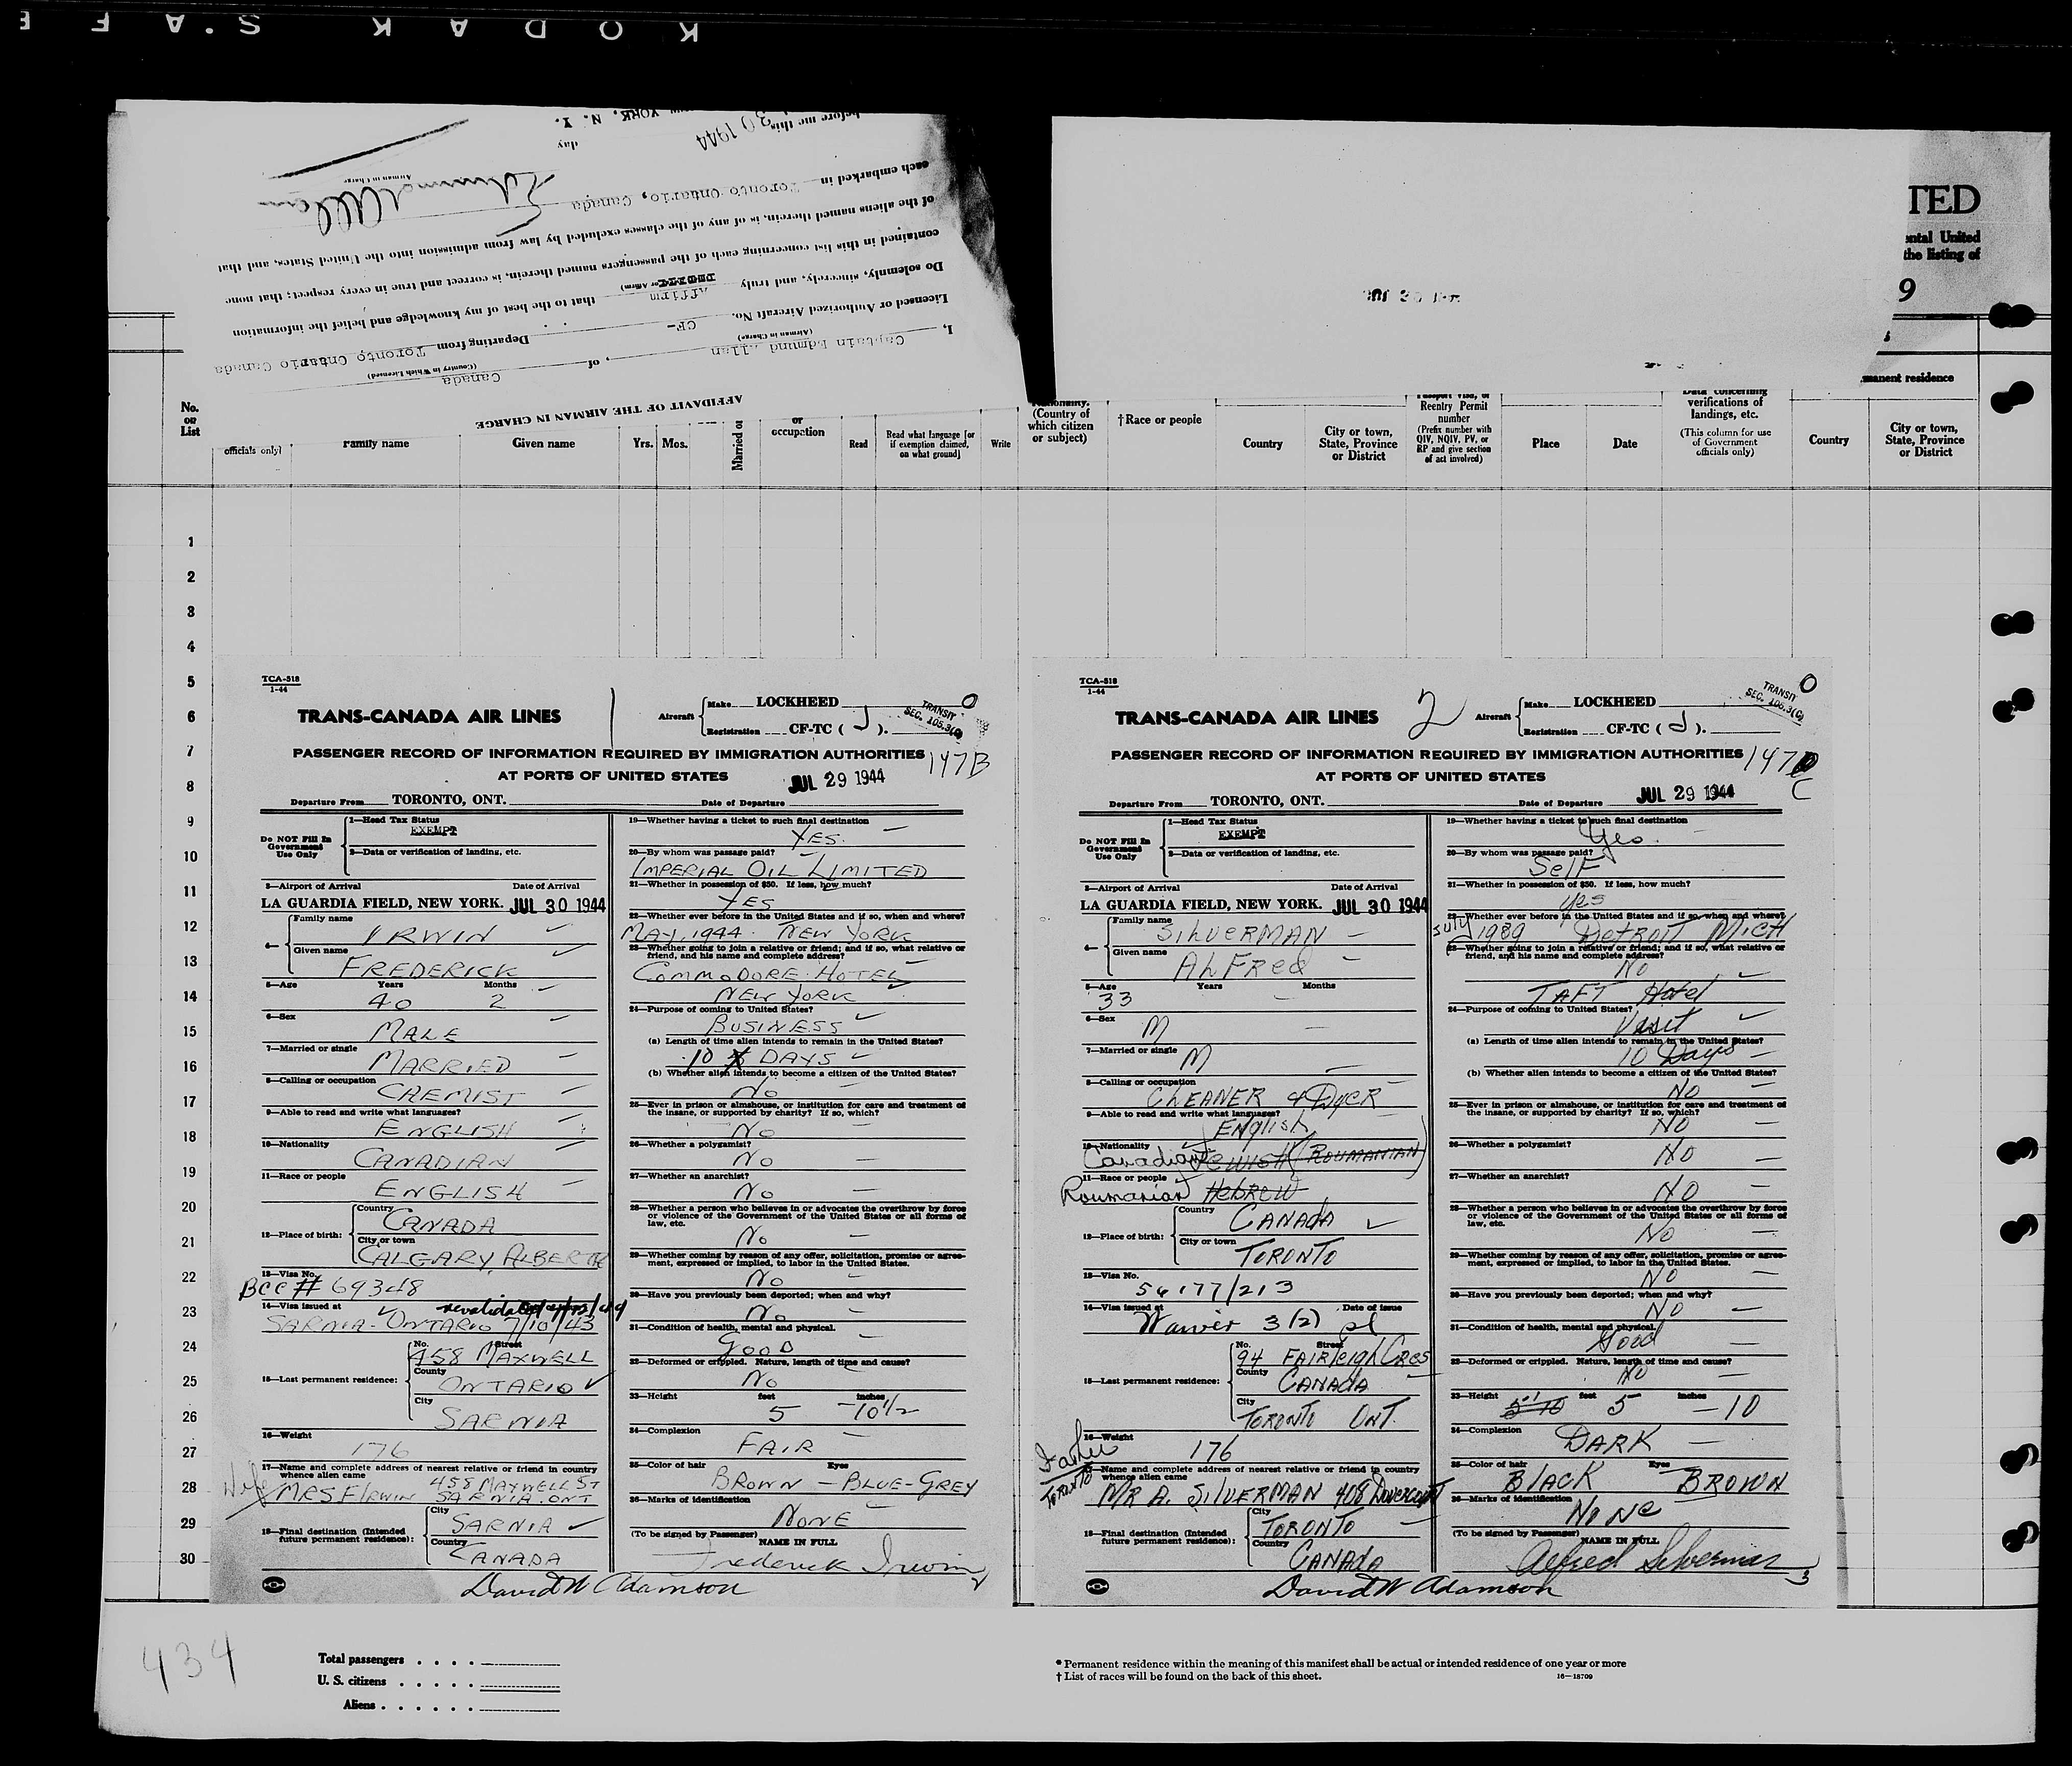 KODAK S.A F E
AFFIDAVIT OF THE AIRMAN IN CHARGE
Canada
(Country in Which Licensed)
I, Captain Edmund Allan, of Departing from Toronto Ontario Canada
(Airman in Charge)
Licensed or Authorized Aircraft No. CF-
Do solemnly, sincerely, and truly Affirm that to the best of my knowledge and belief the information
contained in this list concerning each of the passengers named therein, is correct and true in every respect; that none
of the aliens named therein, is of any of the classes excluded by law from admission into the United States, and that
each embarked in Toronto Ontario, Canada
Airman in Charge
before me this 30 1944 day
YORK, N. Y.
ITED
ental United
the listing of
9
manent residence
No.
on
List
officials only)
Family name
Given name
Yrs. Mos.
Married or
or
occupation
Read
Read what language [or
if exemption claimed,
on what ground]
Write
Nationality.
(Country of
which citizen
or subject)
†Race or people
Country
City or town,
State, Province
or District
Reentry Permit
number
(Prefix number with
QIV, NQIV, PV, or
RP and give section
of act involved)
Place
Date
Data concerning
verifications of
landings, etc.
(This column for use
of Government
officials only)
Country
City or town,
State, Province
or District
1
2
3
4
5
6
7
8
9
10
11
12
13
14
15
16
17
18
19
20
21
22
23
24
25
26
27
28
29
30
TCA-518
1-44
TRANS-CANADA AIR LINES
1
Aircraft
Make LOCKHEED
Registration CF-TC ( J ).
0
TRANSIT
SEC. 105.3(C)
PASSENGER RECORD OF INFORMATION REQUIRED BY IMMIGRATION AUTHORITIES
AT PORTS OF UNITED STATES
147B
JUL 29 1944
Departure From TORONTO, ONT. Date of Departure
Do NOT Fill In
Government
Use Only
1—Head Tax Status
EXEMPT
2—Data or verification of landing, etc.
3—Airport of Arrival Date of Arrival
LA GUARDIA FIELD, NEW YORK. JUL 30 1944
4—
Family name
IRWIN
Given name
FREDERICK
5—Age Years Months
40 2
6—Sex
MALE
7—Married or single
MARRIED
8—Calling or occupation
CHEMIST
9—Able to read and write what languages?
ENGLISH
10—Nationality
CANADIAN
11—Race or people
ENGLISH
12—Place of birth:
Country
CANADA
City or town
CALGARY, ALBERTA
13—Visa No.
BCC # 69348
14—Visa issued at
SARNIA-ONTARIO 7/10/43
15—Last permanent residence:
No. Street
458 MAXWELL
County
ONTARIO
City
SARNIA
16—Weight
176
17—Name and complete address of nearest relative or friend in country
whence alien came
458 MAXWELL ST
Wife MRS F IRWIN SARNIA. ONT
18—Final destination (Intended
future permanent residence):
City
SARNIA
Country
CANADA
19—Whether having a ticket to such final destination
YES.
20—By whom was passage paid?
IMPERIAL OIL LIMITED
21—Whether in possession of $50. If less, how much?
YES
22—Whether ever before in the United States and if so, when and where?
MAY, 1944. NEW YORK
23—Whether going to join a relative or friend; and if so, what relative or
friend, and his name and complete address?
COMMODORE HOTEL
NEW YORK
24—Purpose of coming to United States?
BUSINESS
(a) Length of time alien intends to remain in the United States?
10 DAYS
(b) Whether alien intends to become a citizen of the United States?
No
25—Ever in prison or almshouse, or institution for care and treatment of
the insane, or supported by charity? If so, which?
No
26—Whether a polygamist?
No
27—Whether an anarchist?
No
28—Whether a person who believes in or advocates the overthrow by force
or violence of the Government of the United States or all forms of
law, etc.
No
29—Whether coming by reason of any offer, solicitation, promise or agree-
ment, expressed or implied, to labor in the United States.
No
30—Have you previously been deported; when and why?
No
31—Condition of health, mental and physical.
GOOD
32—Deformed or crippled. Nature, length of time and cause?
No
33—Height feet inches
5 10 1/2
34—Complexion
FAIR
35—Color of hair Eyes
BROWN — BLUE-GREY
36—Marks of identification
NONE
(To be signed by Passenger) NAME IN FULL
Frederick Irwin
David W Adamson
TCA-518
1-44
TRANS-CANADA AIR LINES
2
Aircraft
Make LOCKHEED
Registration CF-TC ( J ).
0
TRANSIT
SEC. 105.3(C)
PASSENGER RECORD OF INFORMATION REQUIRED BY IMMIGRATION AUTHORITIES
AT PORTS OF UNITED STATES
147 C
JUL 29 1944
Departure From TORONTO, ONT. Date of Departure
Do NOT Fill In
Government
Use Only
1—Head Tax Status
EXEMPT
2—Data or verification of landing, etc.
3—Airport of Arrival Date of Arrival
LA GUARDIA FIELD, NEW YORK. JUL 30 1944
4—
Family name
SILVERMAN
Given name
ALFRED
5—Age Years Months
33
6—Sex
M
7—Married or single
M
8—Calling or occupation
CLEANER & DYER
9—Able to read and write what languages?
ENGLISH
10—Nationality
Canadian JEWISH (ROUMANIAN)
11—Race or people
Roumanian HEBREW
12—Place of birth:
Country
CANADA
City or town
TORONTO
13—Visa No.
56177/213
14—Visa issued at Date of issue
Waiver 3(2) pl
15—Last permanent residence:
No. Street
94 FAIRLEIGH CRES
County
CANADA
City
TORONTO ONT.
16—Weight
176
17—Name and complete address of nearest relative or friend in country
whence alien came
Father
TORONTO
MR A. SILVERMAN 408 Dovercourt
18—Final destination (Intended
future permanent residence):
City
TORONTO
Country
CANADA
19—Whether having a ticket to such final destination
Yes.
20—By whom was passage paid?
SELF
21—Whether in possession of $50. If less, how much?
Yes
22—Whether ever before in the United States and if so, when and where?
July 1939 DETROIT MICH
23—Whether going to join a relative or friend; and if so, what relative or
friend, and his name and complete address?
No
TAFT Hotel
24—Purpose of coming to United States?
Visit
(a) Length of time alien intends to remain in the United States?
10 Days
(b) Whether alien intends to become a citizen of the United States?
NO
25—Ever in prison or almshouse, or institution for care and treatment of
the insane, or supported by charity? If so, which?
NO
26—Whether a polygamist?
NO
27—Whether an anarchist?
NO
28—Whether a person who believes in or advocates the overthrow by force
or violence of the Government of the United States or all forms of
law, etc.
NO
29—Whether coming by reason of any offer, solicitation, promise or agree-
ment, expressed or implied, to labor in the United States.
NO
30—Have you previously been deported; when and why?
NO
31—Condition of health, mental and physical.
Good
32—Deformed or crippled. Nature, length of time and cause?
NO
33—Height feet inches
5'10 5 — 10
34—Complexion
DARK
35—Color of hair Eyes
BLACK BROWN
36—Marks of identification
None
(To be signed by Passenger) NAME IN FULL
Alfred Silverman
David W Adamson
434
Total passengers . . . .
U. S. citizens . . . . .
Aliens . . . . . .
* Permanent residence within the meaning of this manifest shall be actual or intended residence of one year or more
† List of races will be found on the back of this sheet.
16—18709